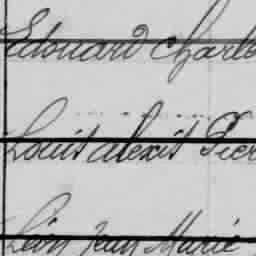 Edouard Charle
Louis Alexis Pier
Léon Jean Marie